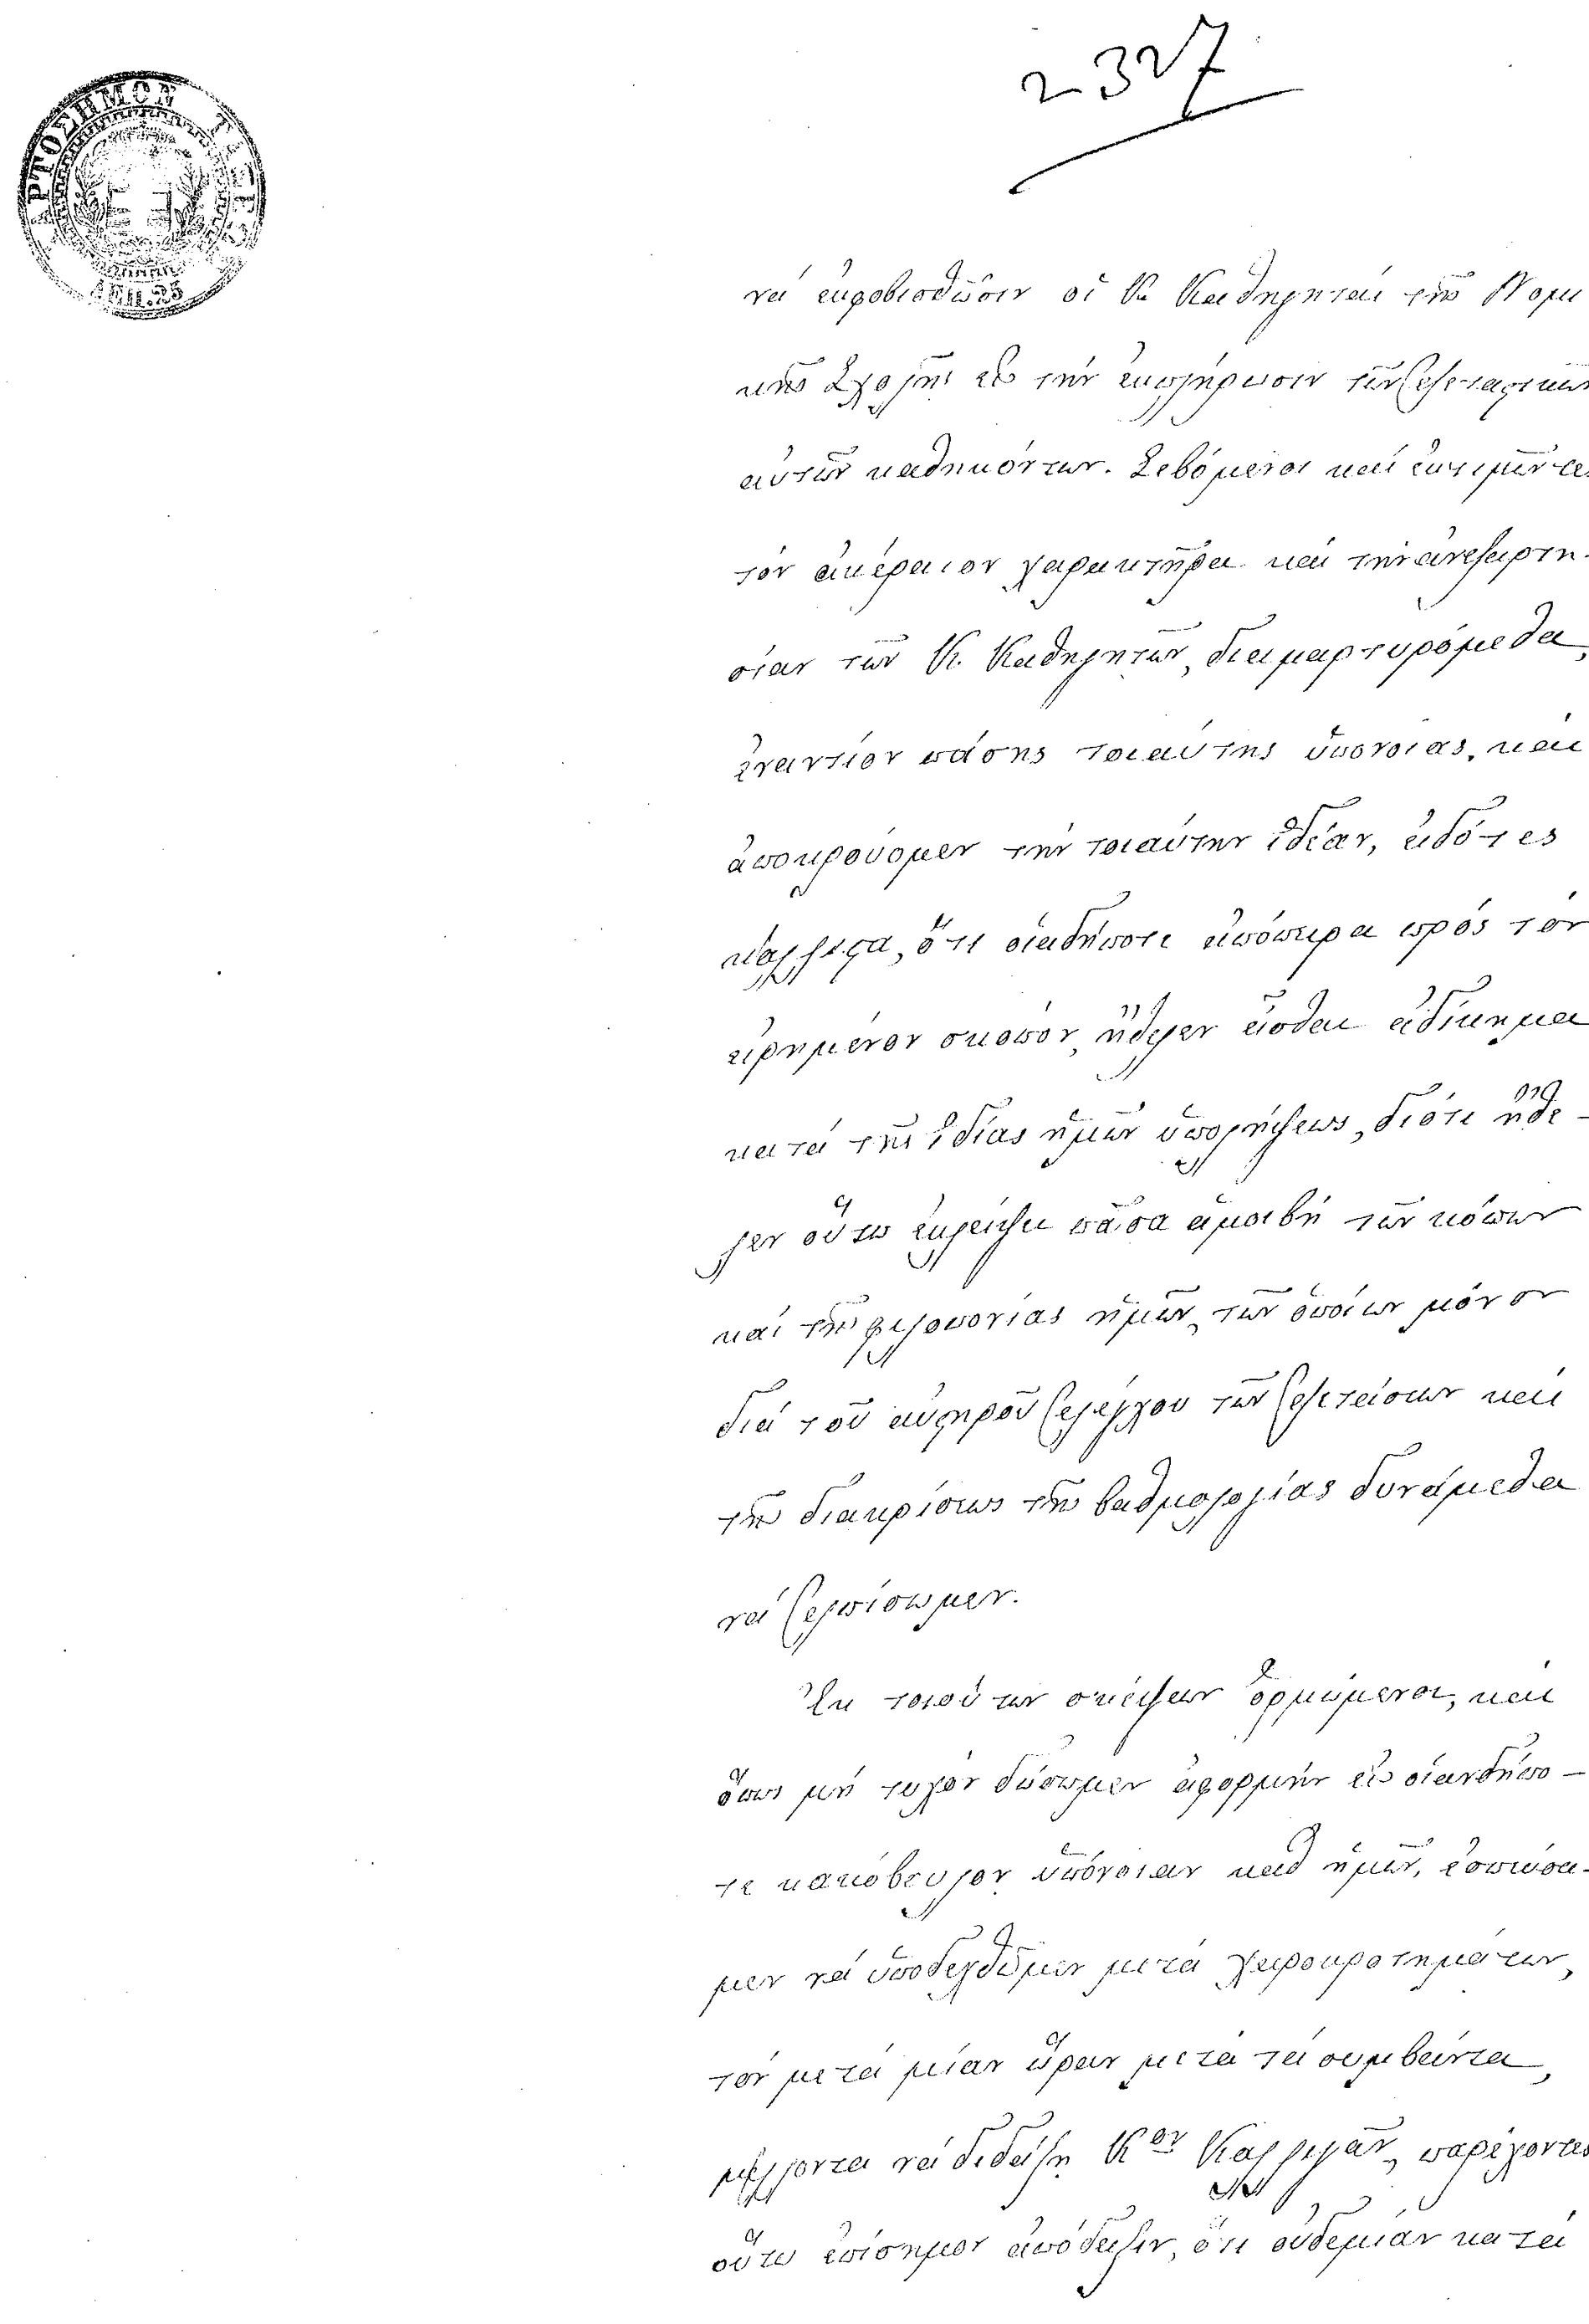 2327
ΡΤΟΣΗΜΟΝ
ΛΕΠ.25
νά ἐκφοβισθῶσιν οἱ Κκ Καθηγηταί τῆς Νομι
κῆς Σχολῆς εἰς τήν ἐκπλήρωσιν τῶν ἐξεταστικῶν
αὐτῶν καθηκόντων. Σεβόμενοι καί ἐκτιμῶντες
τόν ἀκέραιον χαρακτῆρα καί τήν ἀνεξαρτη-
σίαν τῶν Κ. Καθηγητῶν, διαμαρτυρόμεθα,
ἐναντίον πάσης τοιαύτης ὑπονοίας, καί
ἀποκρούομεν τήν τοιαύτην ἰδέαν, εἰδότες
κάλλιστα, ὅτι οἱαδήποτε ἀπόπειρα πρός τόν
εἰρημένον σκοπόν, ἤθελεν εἶσθαι ἀδίκημα
κατά τῆς ἰδίας ἡμῶν ὑπολήψεως, διότι ἤθε-
λεν οὕτω ἐκλείψει πᾶσα ἀμοιβή τῶν κόπων
καί τῆς φιλοπονίας ἡμῶν, τῶν ὁποίων μόνον
διά τοῦ αὐστηροῦ ἐλέγχου τῶν ἐξετάσεων καί
τῆς διακρίσεως τῆς βαθμολογίας δυνάμεθα
νά ἐλπίσωμεν.
Ἐκ τοιούτων σκέψεων ὁρμώμενοι, καί
ὅπως μή τυχόν δώσωμεν ἀφορμήν εἰς οἱανδήπο-
τε κακόβουλον ὑπόνοιαν καθ ἡμῶν, ἐσπεύσα-
μεν νά ὑποδεχθῶμεν μετά χειροκροτημάτων,
τόν μετά μίαν ὥραν μετά τά συμβάντα,
μέλλοντα νά διδάξῃ Κον Καλλιγᾶν, παρέχοντες
οὕτω ἐπίσημον ἀπόδειξιν, ὅτι οὐδεμίαν κατά